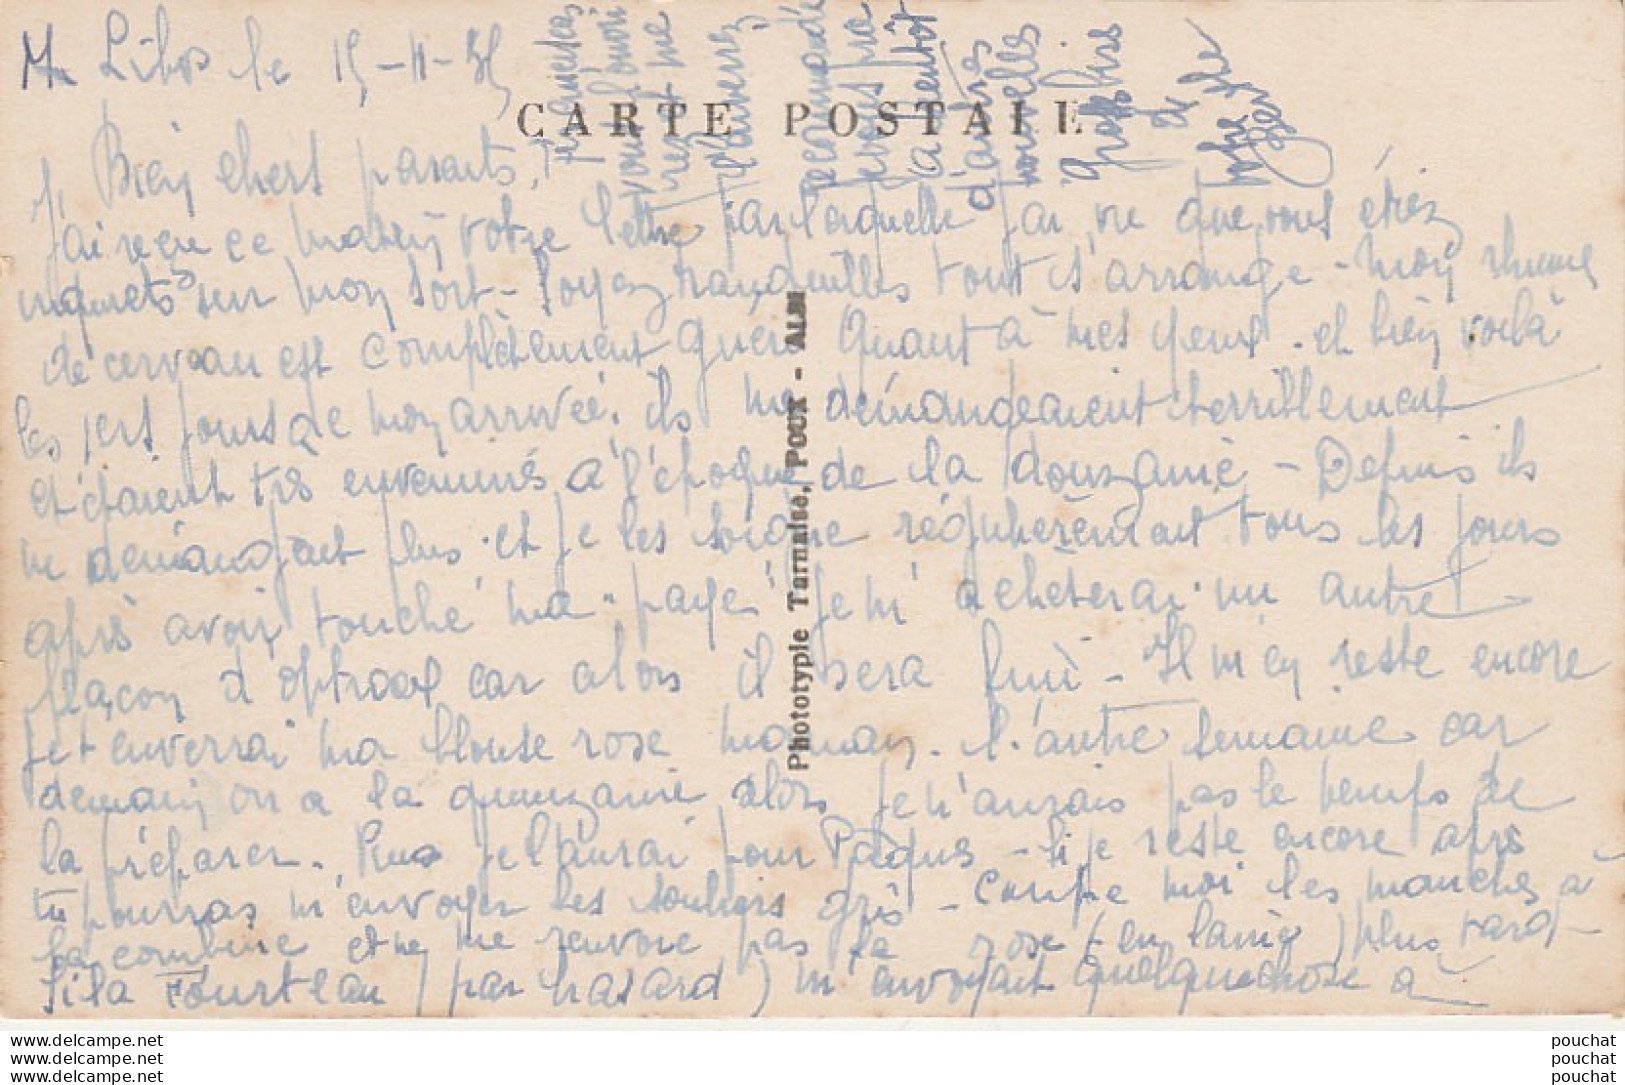 Mr Libos le 15-11-35
CARTE POSTALE
Bien chers parents,
J'ai reçu ce matin votre lettre par laquelle j'ai vu que vous étiez
inquiets sur mon sort - Soyez tranquilles tout s'arrange - mon rhume
de cerveau est complètement guéri Quant à mes yeux - et bien voilà
les jours de mon arrivée, ils me démangeaient terriblement
et étaient très envenimés à l'époque de la douzaine - Depuis ils
ne démangent plus et je les soigne régulièrement tous les jours
après avoir touché ma paye je m'achèterai un autre
flaçon d'optraex car alors il sera fini - Il m'en reste encore
Je t'enverrai ma blouse rose maman. l'autre semaine car
demain on a la quinzaine alors je n'aurais pas le temps de
la préparer. Puis je l'aurai pour Pâques - Si je reste encore après
tu pourras m'envoyer les souliers gris - Coupe moi les manches à
la combine et ne me renvoie pas la rose (en laine) plus tard -
Si la Fourteau (par hasard) m'envoyant quelque chose à
vous l'envoi
reste me
l'enverrez
recommandé
je vous
à bientôt
d'autres
nouvelles
Grosses bises
de
Phototypie Tarnaise, POUX - ALBI
www.delcampe.net
www.delcampe.net
www.delcampe.net
pouchat
pouchat
pouchat